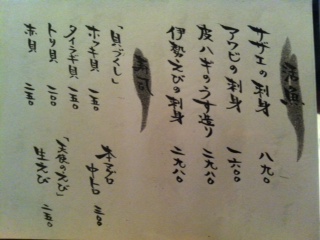 活魚
サザエの刺身 八九〇
アワビの刺身 一六〇〇
皮ハギのうす造り 二九八〇
伊勢えびの刺身 二九八〇
「貝づくし」
ホッキ貝 一五〇
タイラギ貝 一五〇
トリ貝 二〇〇
赤貝 二五〇
本マグロ
中トロ 三〇〇
「天使のえび」
生えび 二五〇